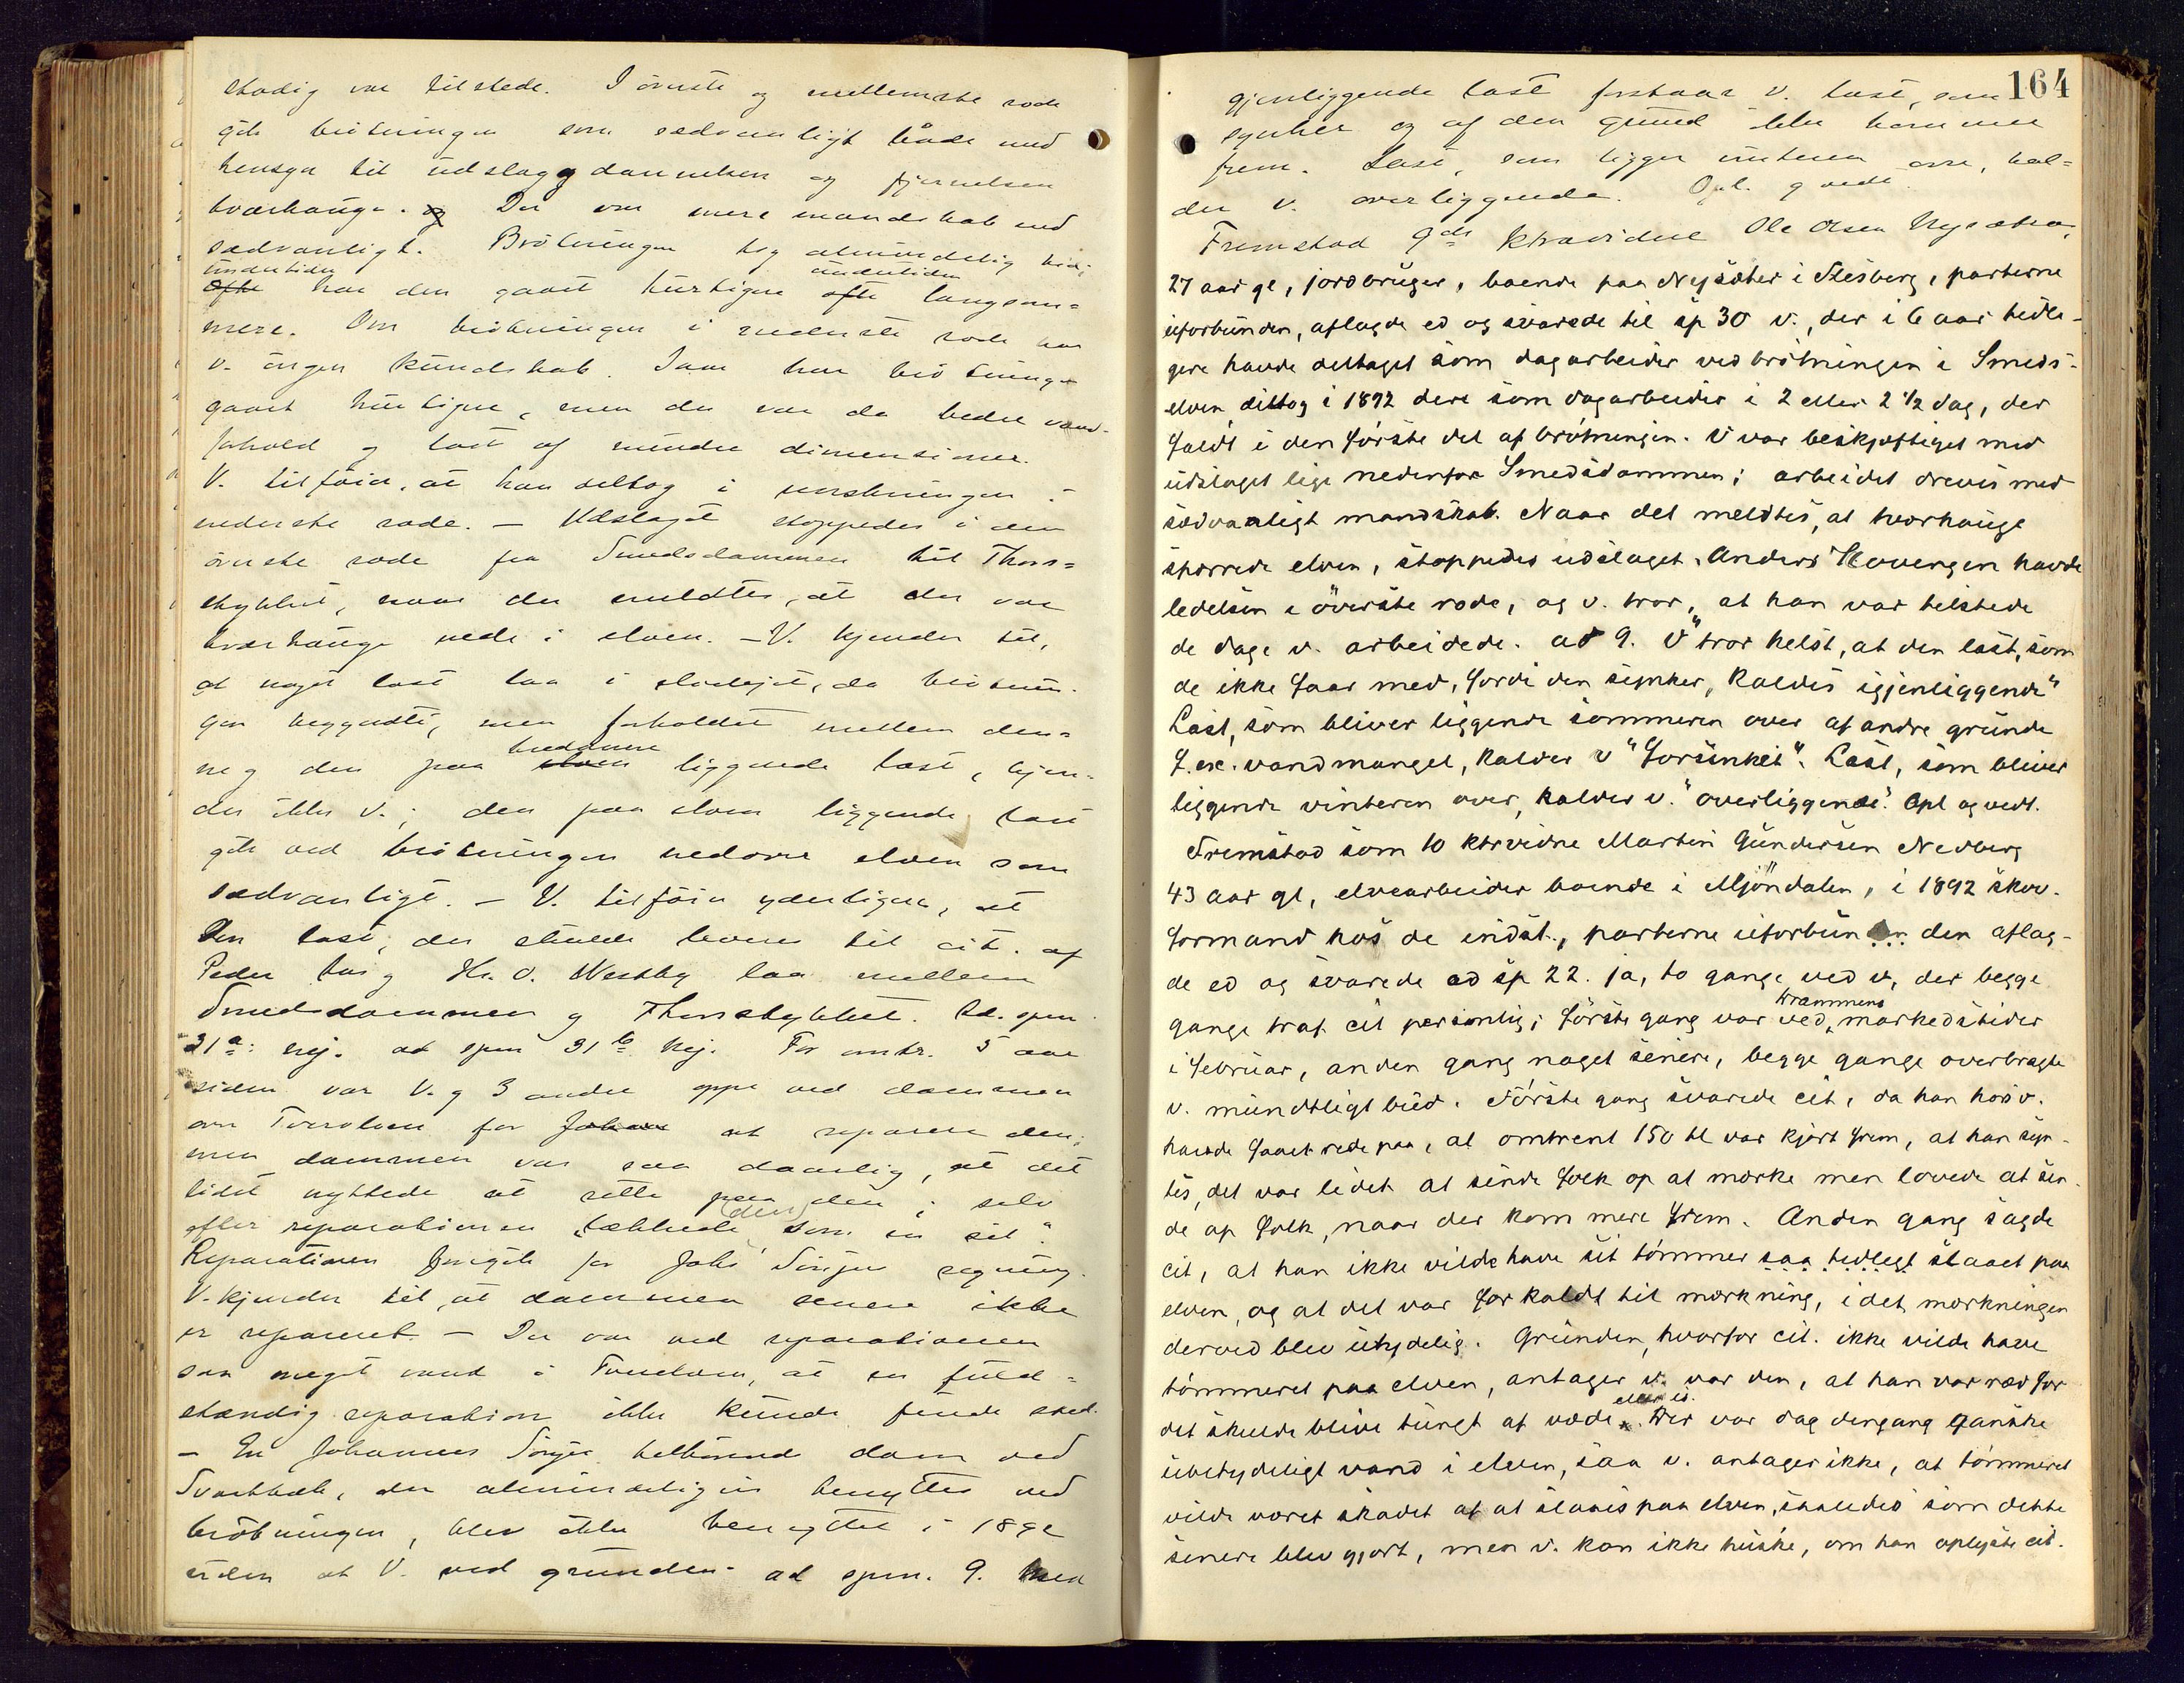 stadig var tilstede. I øverste og mellemste rode
gik brötningen som sædvanligt både med
hensyn til udslagg dannelsen og fjernelsen
tværhauge. og Der var mere mandskab end
sædvanligt. Brötningen tog almindelig tid;
undertiden undertiden
ofte har den gaaet hurtigere ofte langsom=
mere. Om brötningen i nederste rode har
v. ingen kundskab. Iaar har brötninge
gaaet hurtigere, men der var da bedre vand-
forhold og last af mindre dimensioner.
V. tilföier, at han deltog i i
nederste rode. — Udslaget stoppedes i den
överste rode fra Smedsdammen til Thors=
stykket, naar der meldtes, at der var
tværhauge nede i elven. — V. kjender til,
at noget last laa i elvelejet, da brötnin-
gen begyndte, men forholdet mellem den=
bredderne
ne og den paa elven liggende last, kjen-
der ikke v.; den paa elven liggende last
gik ved brötningen nedover elven som
sædvanligt. — V. tilföier yderligere, at
Den last, der skulde leveres til cit. af
Peder og Kr. O. Westby laa mellem
Smedsdammen og Thorsstykket. Ad. spm.
31 a: nej. ad spm 31 b nej. For omtr. 5 aar
siden var V. og 3 andre oppe ved dammen
over Tverelven for Johan at reparere den;
men dammen var saa daarlig, at det
lidet nyttede at rette paa den; selv
(den)
efter reparationen lækkede som en sil".
Reparationen foregik for Johs Sörjes regning.
V. kjender til, at dammen senere ikke
er repareret. — Der var ved reparationen
saa meget vand i Tverelven, at en fuld=
stændig reparation ikke kunde finde sted.
— En Johannes Sörjes tilhörende dam ved
Svartbæk, der almindeligvis benyttes ved
brötningen, blev ikke benyttet i 1892
uden at V. ved grunden. ad spm. 9. Med
164
gjenliggende last forstaar v. last, som
synker og af den grund ikke kommer
frem. Last, som ligger vinteren over, kal=
der v. overliggende. Opl. og vedt.
Fremstod 9de ktravidne Ole Olsen Nysæter,
27 aar gl, jordbruger, boende paa Nysæter i Flesberg, parterne
uforbunden, aflagde ed og svarede til sp 30 v., der i 6 aar tidli-
gere havde deltaget som dagarbeider ved brötningen i Smeds-
elven deltog i 1892 dere som dagarbeider i 2 eller 2 ½ dag, der
faldt i den förste del af brötningen. V var beskjæftiget med
udslaget lige nedenfor Smedsdammen; arbeidet dreves med
sædvanligt mandskab. Naar det meldtes, at tværhauge
spærrede elven, stoppedes udslaget. Anders Hovengen havde
ledelsen i överste rode, og v. tror, at han var tilstede
de dage v. arbeidede. ad 9. V tror helst, at den last, som
de ikke faar med, fordi den synker, kaldes "igjenliggende"
Last, som bliver liggende sommeren over af andre grunde
f. ex. vandmangel, kalder v "forsinket". Last, som bliver
liggende vinteren over, kalder v. "overliggende". Opl og vedt.
Fremstod som 10 ktrvidne Martin Gundersen Nedberg
43 aar gl, elvearbeider boende i Mjöndalen, i 1892 skov-
formand hos de indst., parterne uforbunden den aflag-
de ed og svarede ad sp 22. ja, to gange ved v, der begge
Drammens
gange traf cit personlig; förste gang var ved markedstider
i februar, anden gang noget senere, begge gange overbragte
v. mundtligt bud. Förste gang svarede cit, da han hos v.
havde faaet rede paa, at omtrent 150 tl var kjört frem, at han syn-
tes, det var lidet at sende folk op at mærke men lovede at sen-
de op folk, naar der kom mere frem. Anden gang sagde
cit, at han ikke vilde have sit tömmer saa tidlegt slaaet paa
elven, og at det var for koldt til mærkning, i det mærkningen
derved blev utydelig. Grunden, hvorfor cit. ikke vilde have
tömmeret paa elven, antager v. var den, at han var ræd for
eller is.
det skulde blive tungt af væde. Der var dag dengang ganske
ubetydeligt vand i elven, saa v. antager ikke, at tömmeret
vilde været skadet af at slaaes paa elven, saaledes som dette
senere blev gjort, men v. kan ikke huske, om han oplyste cit.